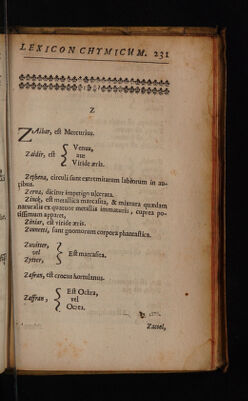 LEXICON CHYMICUM. 231
Z
ZAibar, est Mercurius.
Zaidir, est { Venus,
aut
Viride æris.
Zephena, circuli sunt extremitatum labiorum in au-
tibus.
Zerna, dicitur impetigo ulcerata.
Zinck, est metallica marcasita, & mixtura quædam
naturalis ex quatuor metallis immaturis, cuprea po-
tissimum apparet.
Ziniar, est viride æris.
Zumetti, sunt gnomorum corpora phantastica.
Zwitter, }
vel Est marcasita.
Zitter,
Zafran, est crocus hortulanus.
Zaffran, { Est Ochra,
vel
Ocrea.
Zassel,